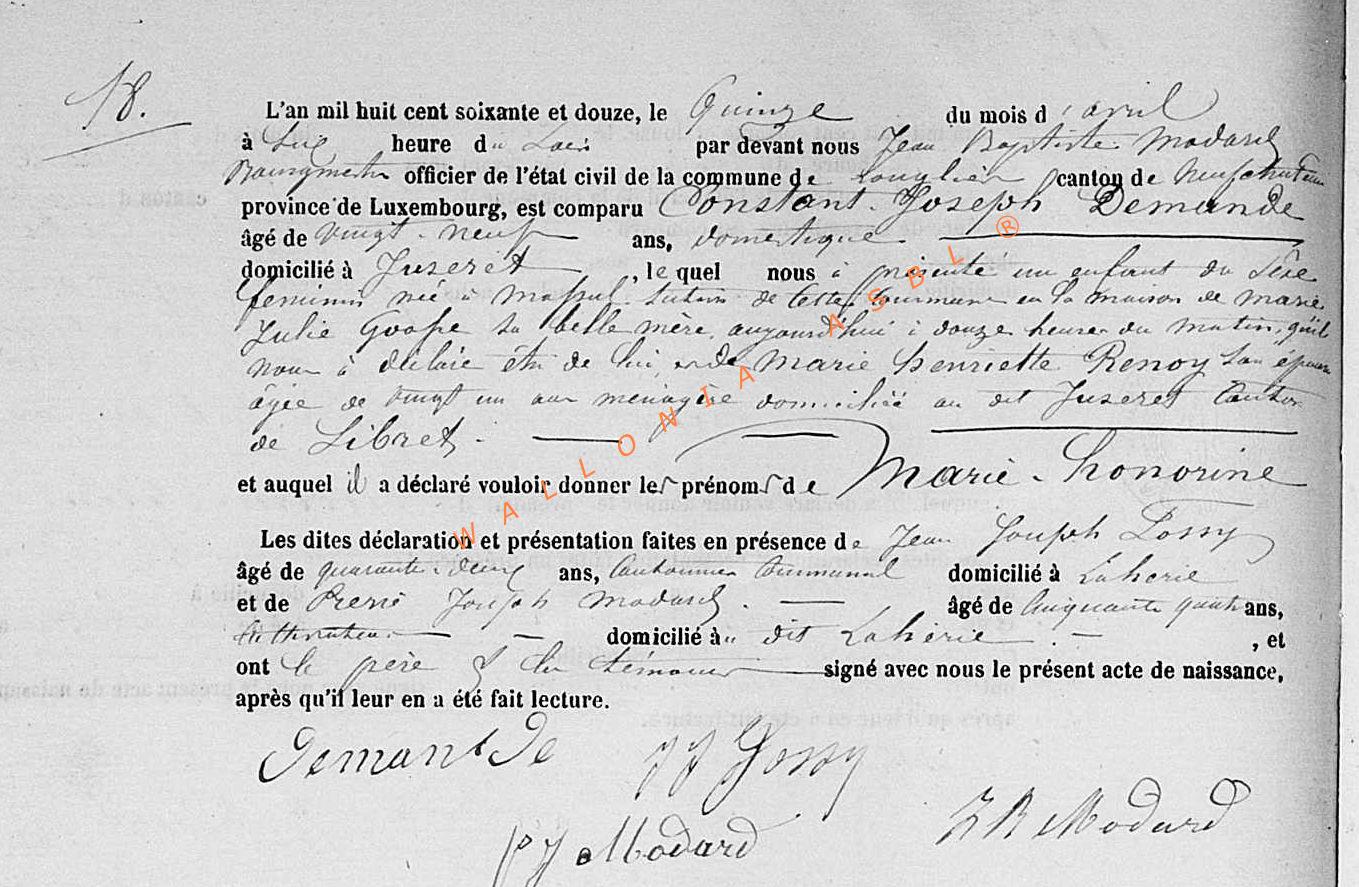 18.
L'an mil huit cent soixante et douze, le Quinze du mois d'avril
à Six heure du Soir par devant nous Jean Baptiste Modard
Bourgmestre officier de l'état civil de la commune de Longlier canton de Neufchateau
province de Luxembourg, est comparu Constant Joseph Demande
âgé de vingt-neuf ans, domestique
domicilié à Juseret, lequel nous à présenté un enfant du sexe
feminin née à Massul section de cette commune en la maison de marie
Julie Goosse sa belle mère, aujourd'hui à douze heures du matin, qu'il
nous à déclaré être de lui, et de Marie henriette Renoy son épouse
âgée de vingt un ans ménagère domiciliée au dit Juseret Canton
de Sibret.
et auquel il a déclaré vouloir donner les prénoms de Marie-honorine
Les dites déclaration et présentation faites en présence de Jean Joseph
âgé de quarante-deux ans, Cantonnier Communal domicilié à Laherie
et de Pierre Joseph Modard. âgé de Cinquante quatre ans,
Cultivateur domicilié au dit Laherie, et
ont le père & les témoins signé avec nous le présent acte de naissance,
après qu'il leur en a été fait lecture.
Demande JJ
PJ Modard JB Modard
WALLONIA ASBL ®